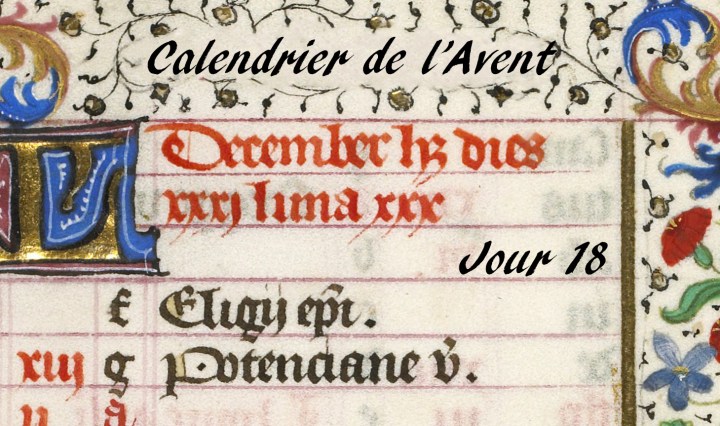 Calendrier de l'Avent
KL
December hȝ dies
xxxj luna xxx
Jour 18
f Eligij ep̃i.
xiij g Potenciane v̄.
ij a